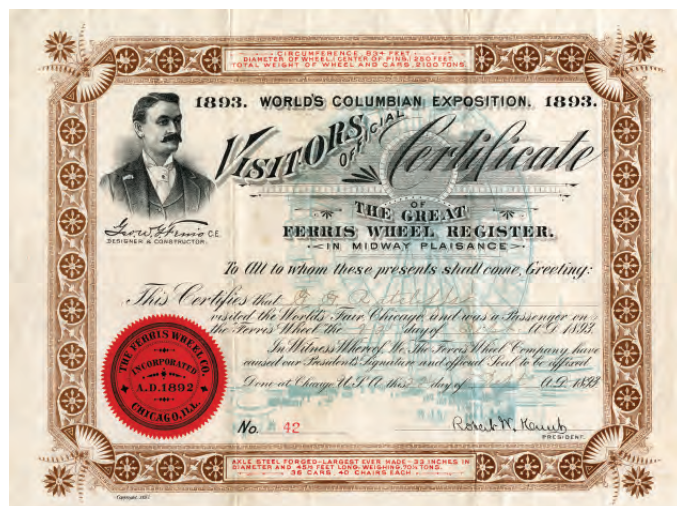 CIRCUMFERENCE 834 FEET
DIAMETER OF WHEEL (CENTER OF PINS) 250 FEET
TOTAL WEIGHT OF WHEEL AND CARS 2100 TONS
1893. WORLD'S COLUMBIAN EXPOSITION. 1893.
VISITORS OFFICIAL Certificate
OF
THE GREAT
FERRIS WHEEL REGISTER.
IN MIDWAY PLAISANCE
Geo. W. G. Ferris C.E.
DESIGNER & CONSTRUCTOR.
To All to whom these presents shall come, Greeting:
This Certifies that
visited the World's Fair Chicago and was a Passenger on
the Ferris Wheel the day of A.D. 1893
In Witness Whereof, We, The Ferris Wheel Company have
caused our President's Signature and official Seal to be affixed
Done at Chicago U.S.A. this day of A.D. 1893
THE FERRIS WHEEL CO.
INCORPORATED
A.D. 1892
CHICAGO, ILL.
No. 42
Robert W.
PRESIDENT.
AXLE STEEL FORGED-LARGEST EVER MADE-33 INCHES IN
DIAMETER AND 45½ FEET LONG. WEIGHING, 70½ TONS.
36 CARS 40 CHAIRS EACH